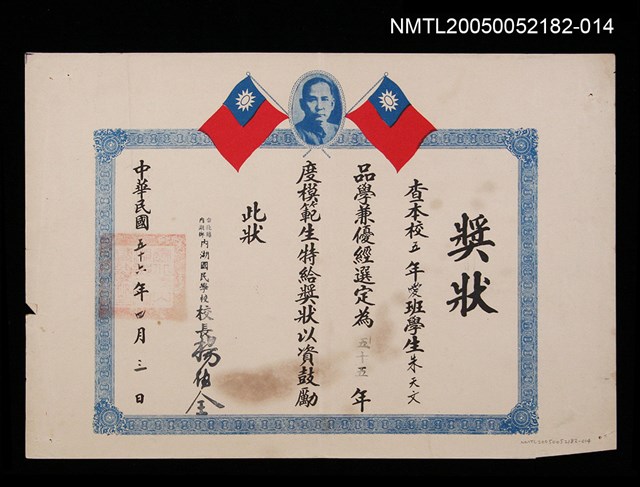 NMTL20050052182-014
獎狀
查本校五年愛班學生朱天文
品學兼優經選定為五十五年
度模範生特給獎狀以資鼓勵
此狀
台北縣內湖鄉內湖國民學校校長楊
中華民國五十六年四月三日
NMTL20050052182-014